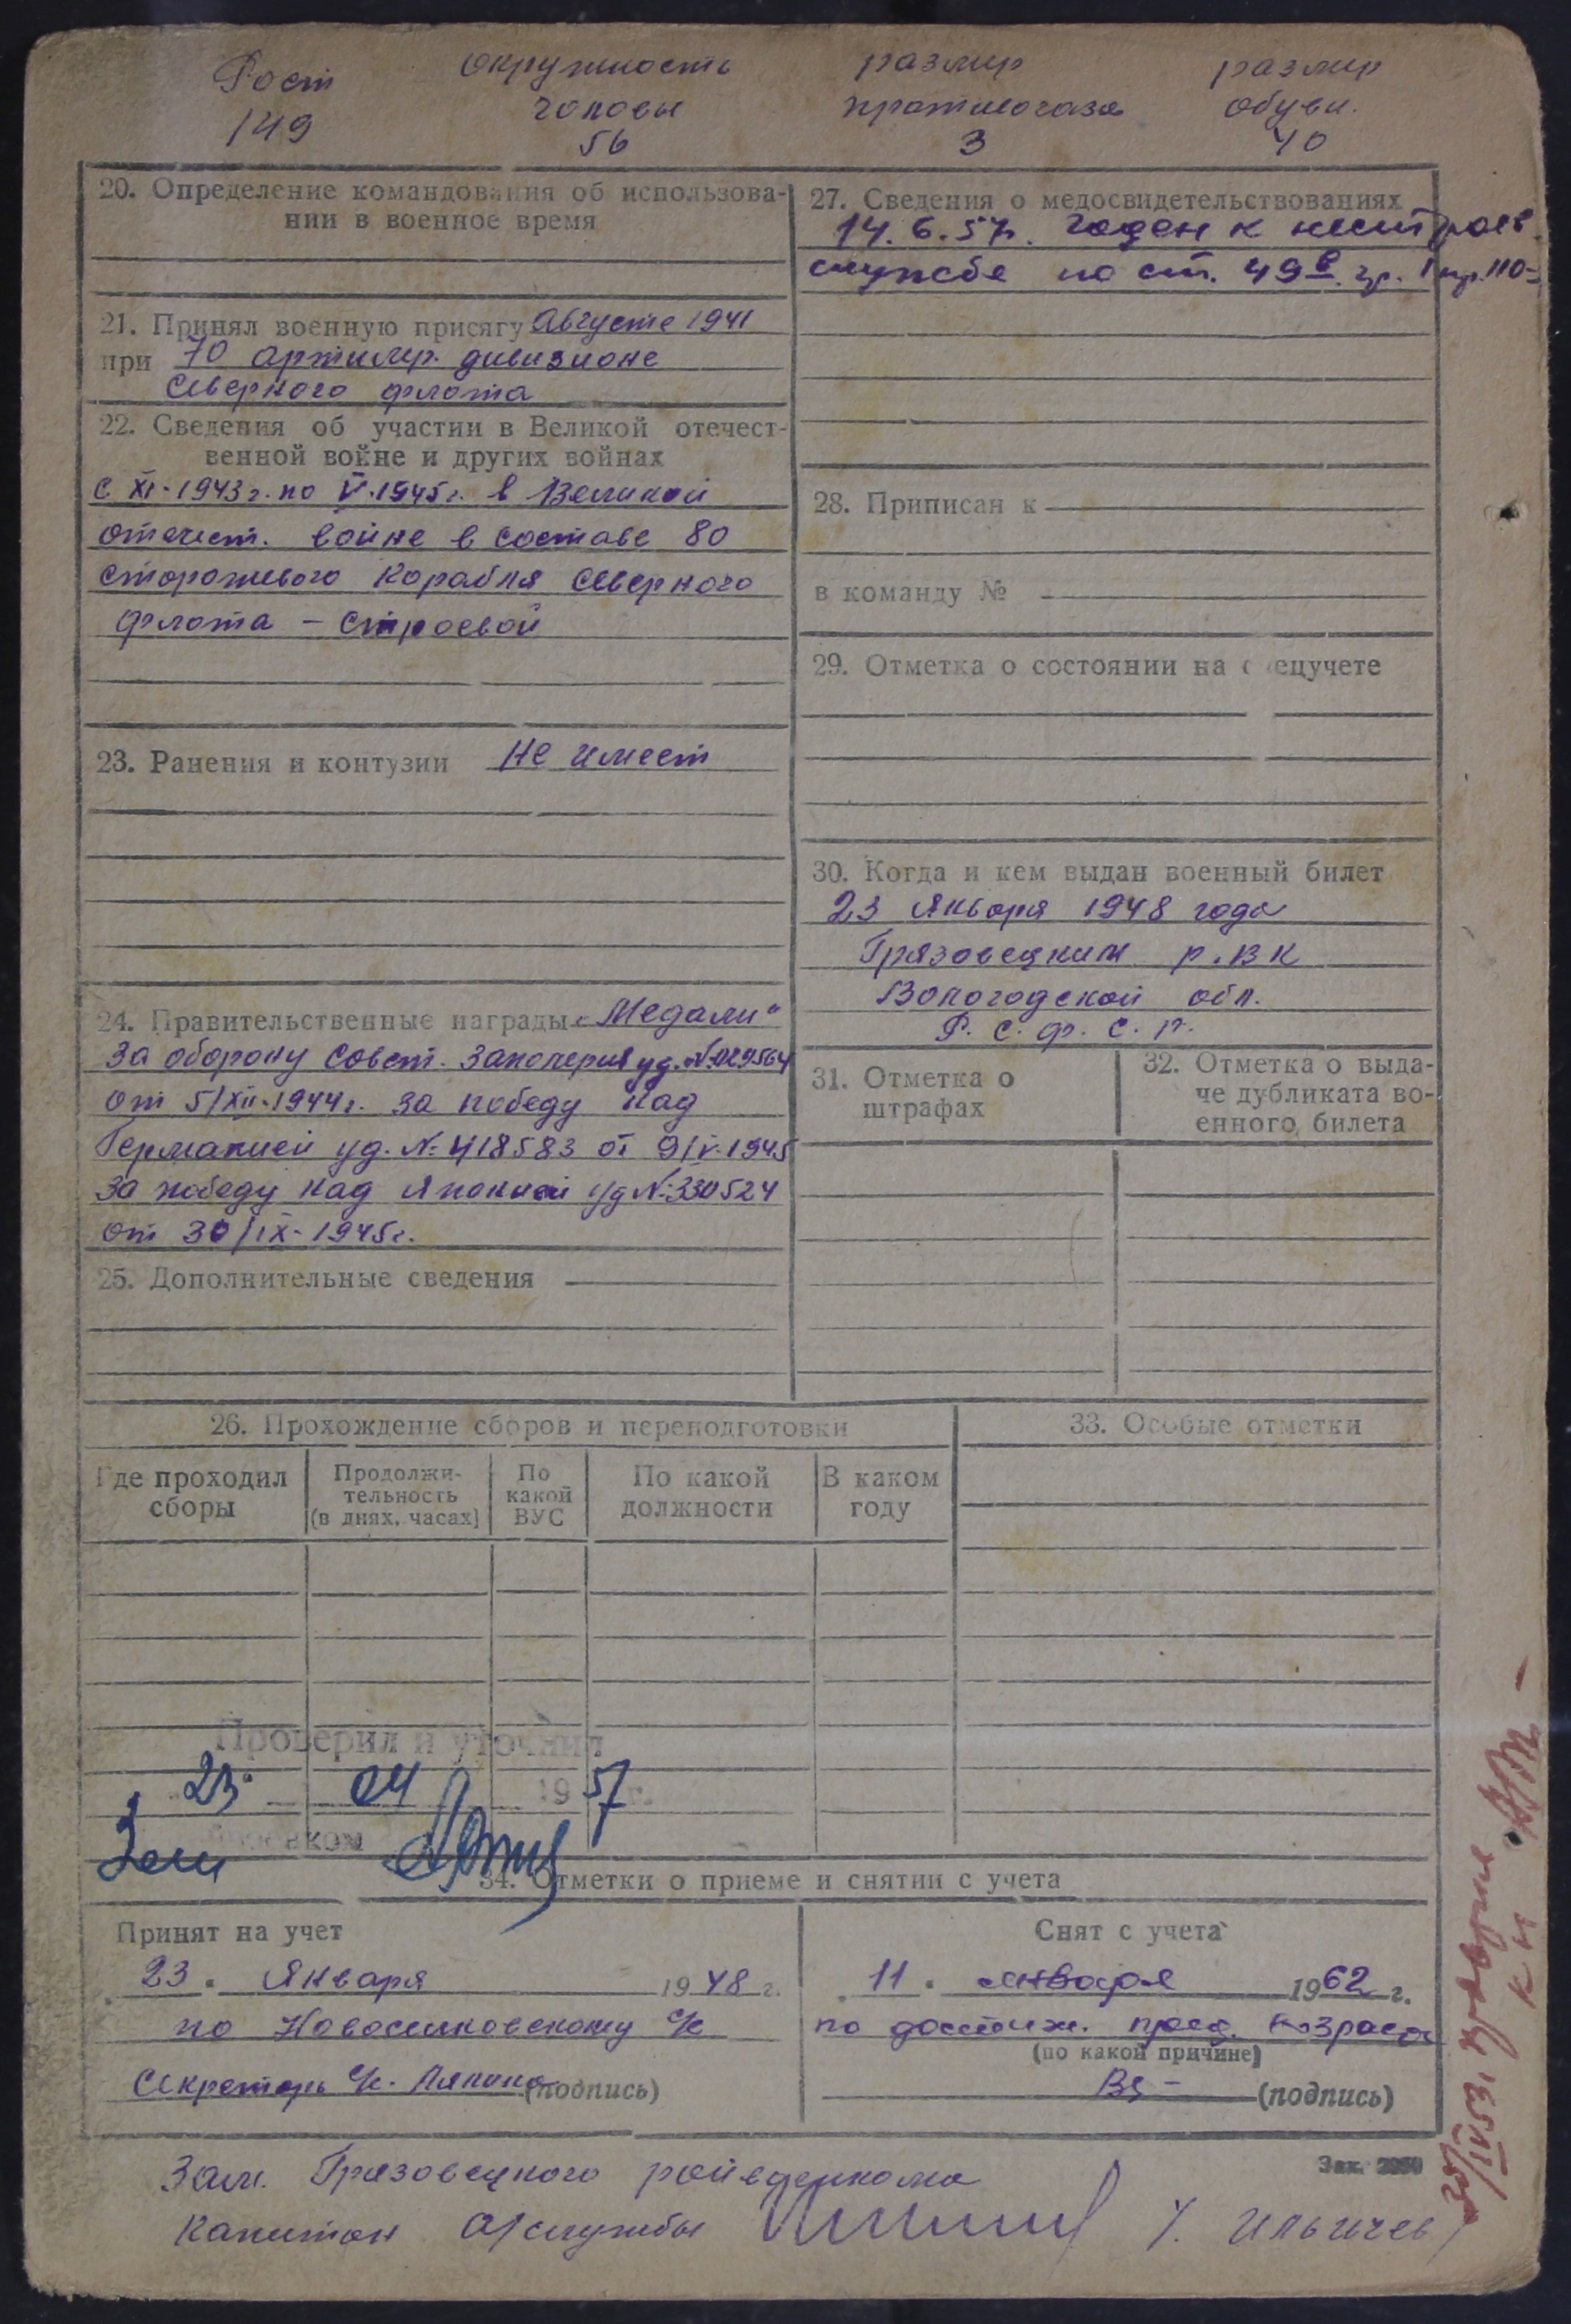 Рост окружность размер размер
головы противогаза обуви.
149 56 3 40
20. Определение командования об использова-
нии в военное время
21. Принял военную присягу Августе 1941
при 70 артилер. дивизионе
Северного флота
22. Сведения об участии в Великой отечест-
венной войне и других войнах
с XI-1943г. по V.1945г. в Великой
отечест. войне в составе 80
сторожевого корабля Северного
флота – строевой
23. Ранения и контузии Не имеет
24. Правительственные награды „Медали“
За оборону Совет. Заполерия уд. №029564
от 5/XII-1944г. за победу над
Германией уд. № 418583 от 9/V-1945
За победу над Японией уд №330524
от 30/IX-1945г.
25. Дополнительные сведения
27. Сведения о медосвидетельствованиях
14.6.57г. годен к нестроев.
службе по ст. 49в. гр. I пр. 110-
28. Приписан к
в команду №
29. Отметка о состоянии на спецучете
30. Когда и кем выдан военный билет
23 Января 1948 года
Грязовецким р.ВК
Вологодской обл.
Р.С.Ф.С.Р.
31. Отметка о
штрафах
32. Отметка о выда-
че дубликата во-
енного билета
26. Прохождение сборов и переподготовки
Где проходил
сборы
Продолжи-
тельность
(в днях, часах)
По
какой
ВУС
По какой
должности
В каком
году
33. Особые отметки
Проверил и уточнил
23. 04 1957 г.
34. Отметки о приеме и снятии с учета
Принят на учет
23. Января 1948 г.
по Новоселковскому с/с
Секретарь с/с. (подпись)
Снят с учета
11. января 1962 г.
по достиж. пред. возраста
(по какой причине)
(подпись)
Зак.
Зам. Грязовецкого райвоенкома
Капитан а/службы У. Ильичев